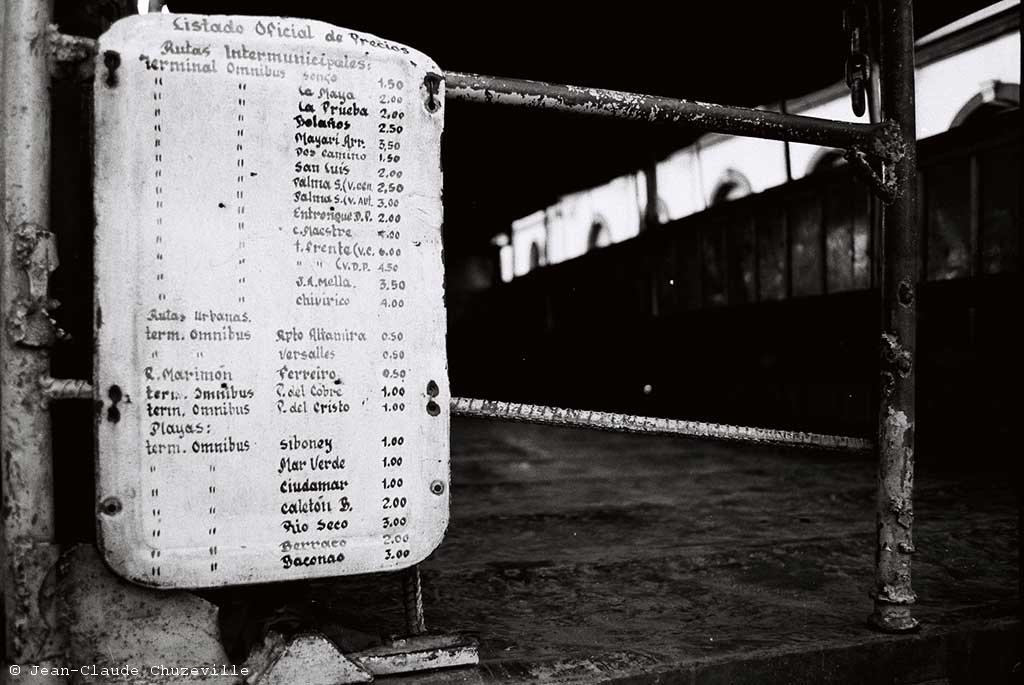 Listado Oficial de Precios
Rutas Intermunicipales:
Terminal Omnibus Songo 1.50
" " La Maya 2.00
" " La Prueba 2.00
" " Bolaños 2.50
" " Mayari Arr. 3.50
" " Dos Camino 1.50
" " San Luis 2.00
" " Palma S.(V.Cen. 2.50
" " Palma S.(V. Aut. 3.00
" " Entronque D.P. 2.00
" " C. Maestre
" " t. Frente (V.C. 6.00
" " " " (V.D.P. 4.50
" " J.A. Mella. 3.50
" " Chivirico 4.00
Rutas Urbanas.
term. Omnibus Rpto Altamira 0.50
" " Versalles 0.50
R. Marimón Ferreiro 0.50
term. Omnibus P. del Cobre 1.00
term. Omnibus P. del Cristo 1.00
Playas:
term. Omnibus Siboney 1.00
" " Mar Verde 1.00
" " Ciudamar 1.00
" " Caletón B. 2.00
" " Rio Seco 3.00
" " Berraco 2.00
" " Baconao 3.00
© Jean-Claude Chuzeville